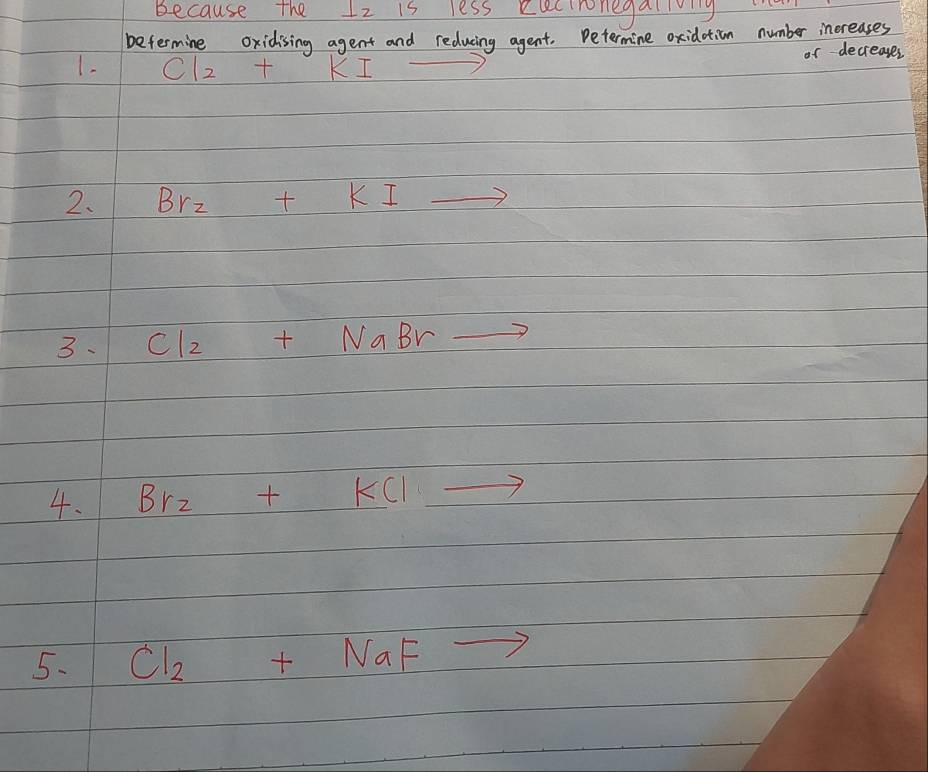 Because the I2 is less electronegativity than
Determine oxidising agent and reducing agent. Determine oxidation number increases
or decreases
1. Cl2 + KI →
2. Br2 + KI →
3. Cl2 + NaBr →
4. Br2 + KCl →
5. Cl2 + NaF →